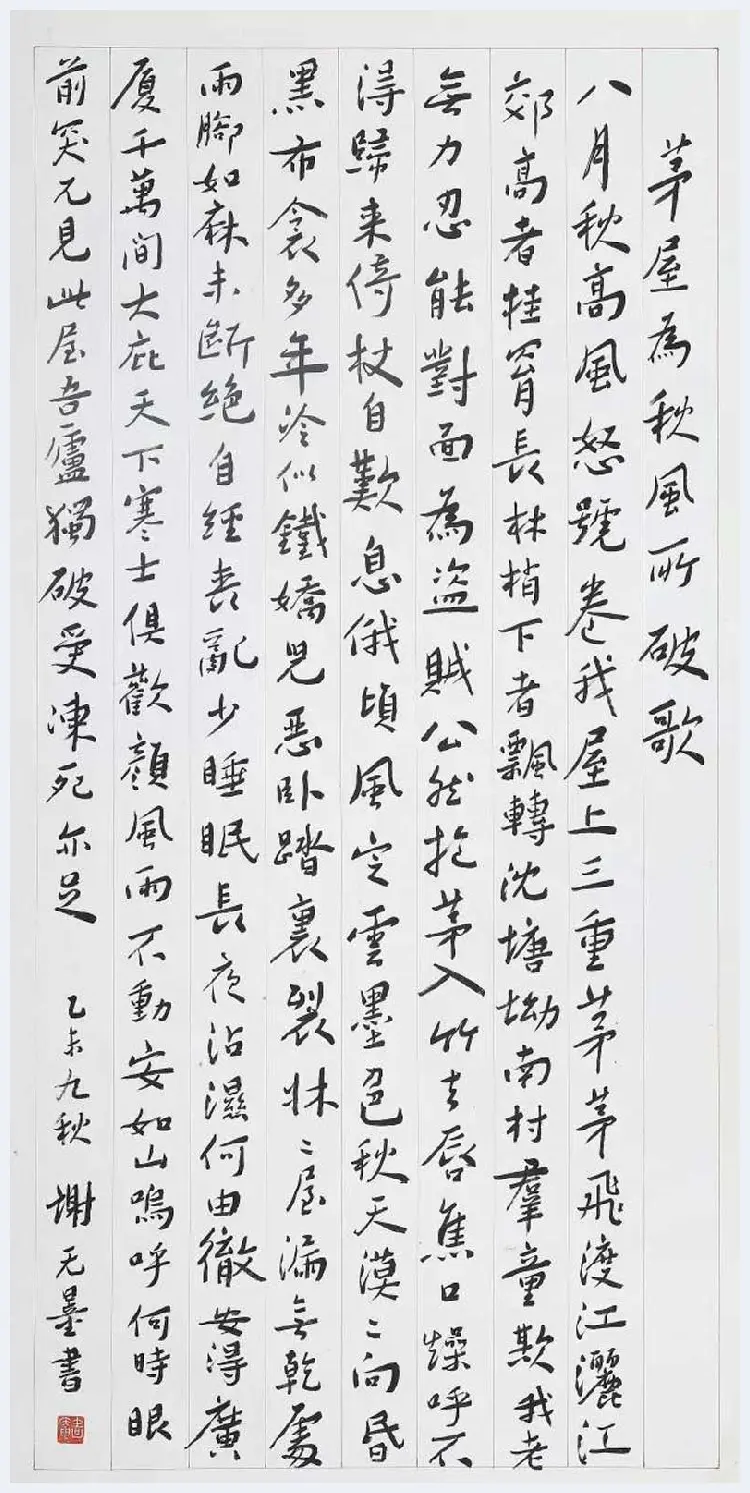 茅屋為秋風所破歌
八月秋高風怒號卷我屋上三重茅茅飛渡江灑江
郊高者挂罥長林梢下者飄轉沈塘坳南村羣童欺我老
無力忍能對面為盜賊公然抱茅入竹去唇焦口燥呼不
得歸来倚杖自歎息俄頃風定雲墨色秋天漠〻向昏
黑布衾多年冷似鐵嬌兒惡卧踏裏裂牀〻屋漏無乾處
雨腳如麻未斷絶自經喪亂少睡眠長夜沾濕何由徹安得廣
廈千萬间大庇天下寒士俱歡顏風雨不動安如山嗚呼何時眼
前突兀見此屋吾廬獨破受凍死亦足
乙未九秋 謝无墨書